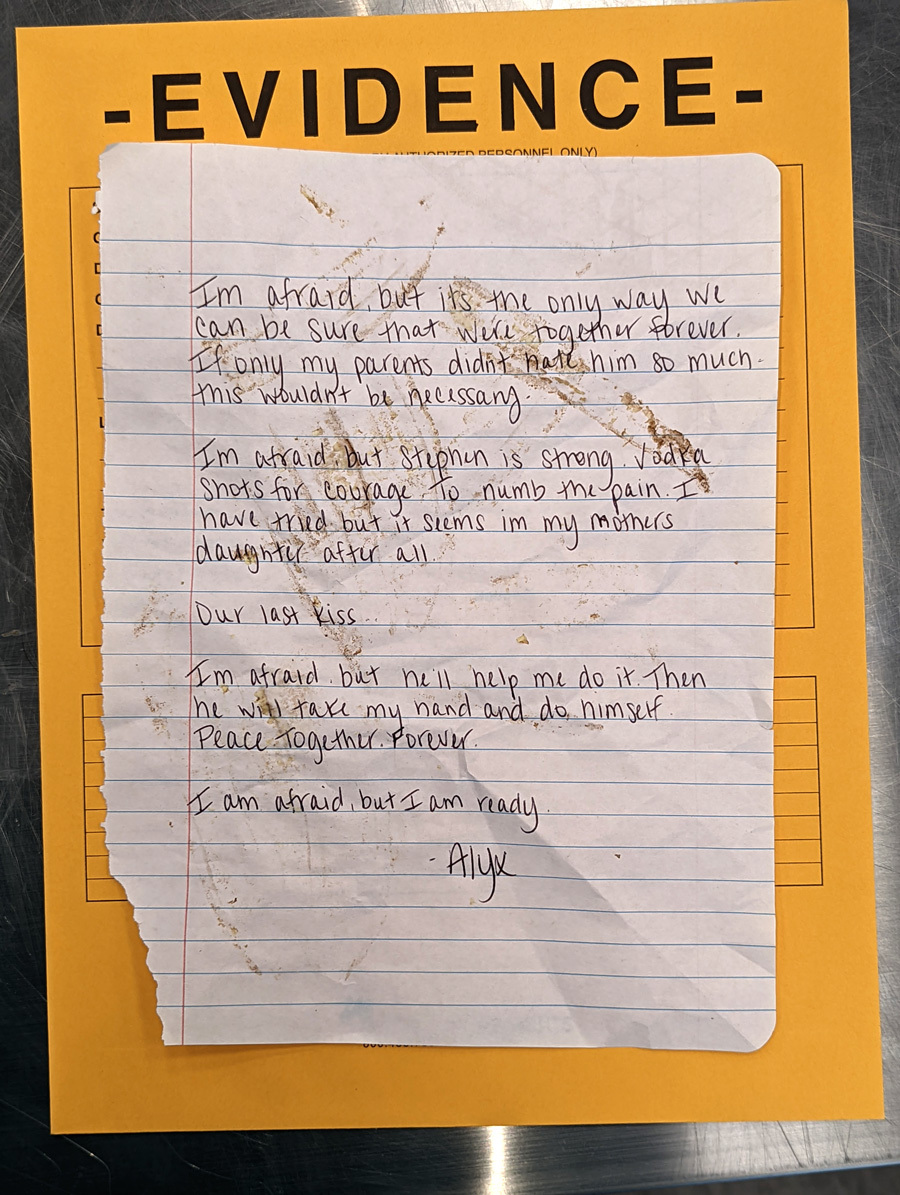 -EVIDENCE-
AUTHORIZED PERSONNEL ONLY)
Im afraid, but its the only way we
can be sure that were together forever.
If only my parents didnt hate him so much.
this wouldnt be necessary.
Im afraid, but Stephen is strong. Vodka
shots for courage. To numb the pain. I
have tried but it seems im my mothers
daughter after all.
Our last kiss...
Im afraid. but hell help me do it. Then
he will take my hand and do himself.
Peace. Together. Forever.
I am afraid, but I am ready.
- Alyx